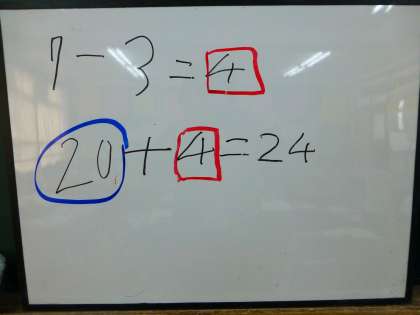 7-3=4
20+4=24